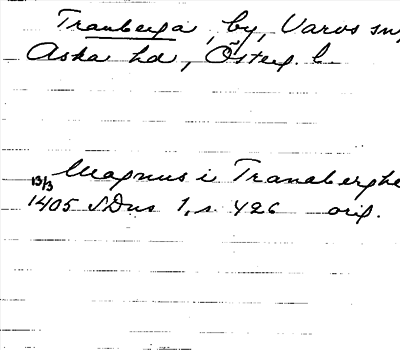 Tranberga, by, Varvs sn,
Aska hd, Östg. l.
Magnus i Tranaberghe
13/3
1405 SDns 1, s. 426 orig.